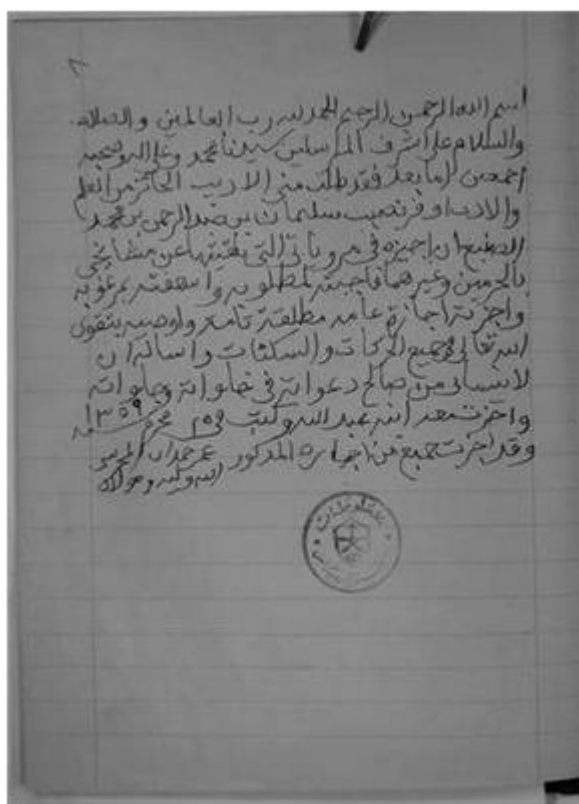 بسم الله الرحمن الرحيم الحمد لله رب العالمين والصلاة
والسلام على اشرف المرسلين سيدنا محمد وعلى اله وصحبه
اجمعين اما بعد فقد طلب مني الاديب الحائز من العلم
والادب اوفر نصيب سليمان بن عبد الرحمن بن محمد
الصنيع ان اجيزه في مروياتي التي تلقيتها عن مشايخي
بالحرمين وغيرهما فاجبته لمطلوبه واسعفته بمرغوبه
واجزته اجازة عامة مطلقة تامة واوصيه بتقوى
الله تعالى في جميع الحركات والسكنات واسأله ان
لا ينساني من صالح دعواته في خلواته وجلواته
واجزت معه ابنه عبد الله وكتب في محرم سنة ١٣٥٩
وقد اجزت جميع من اجازه المذكور عمر حمدان المحرسي